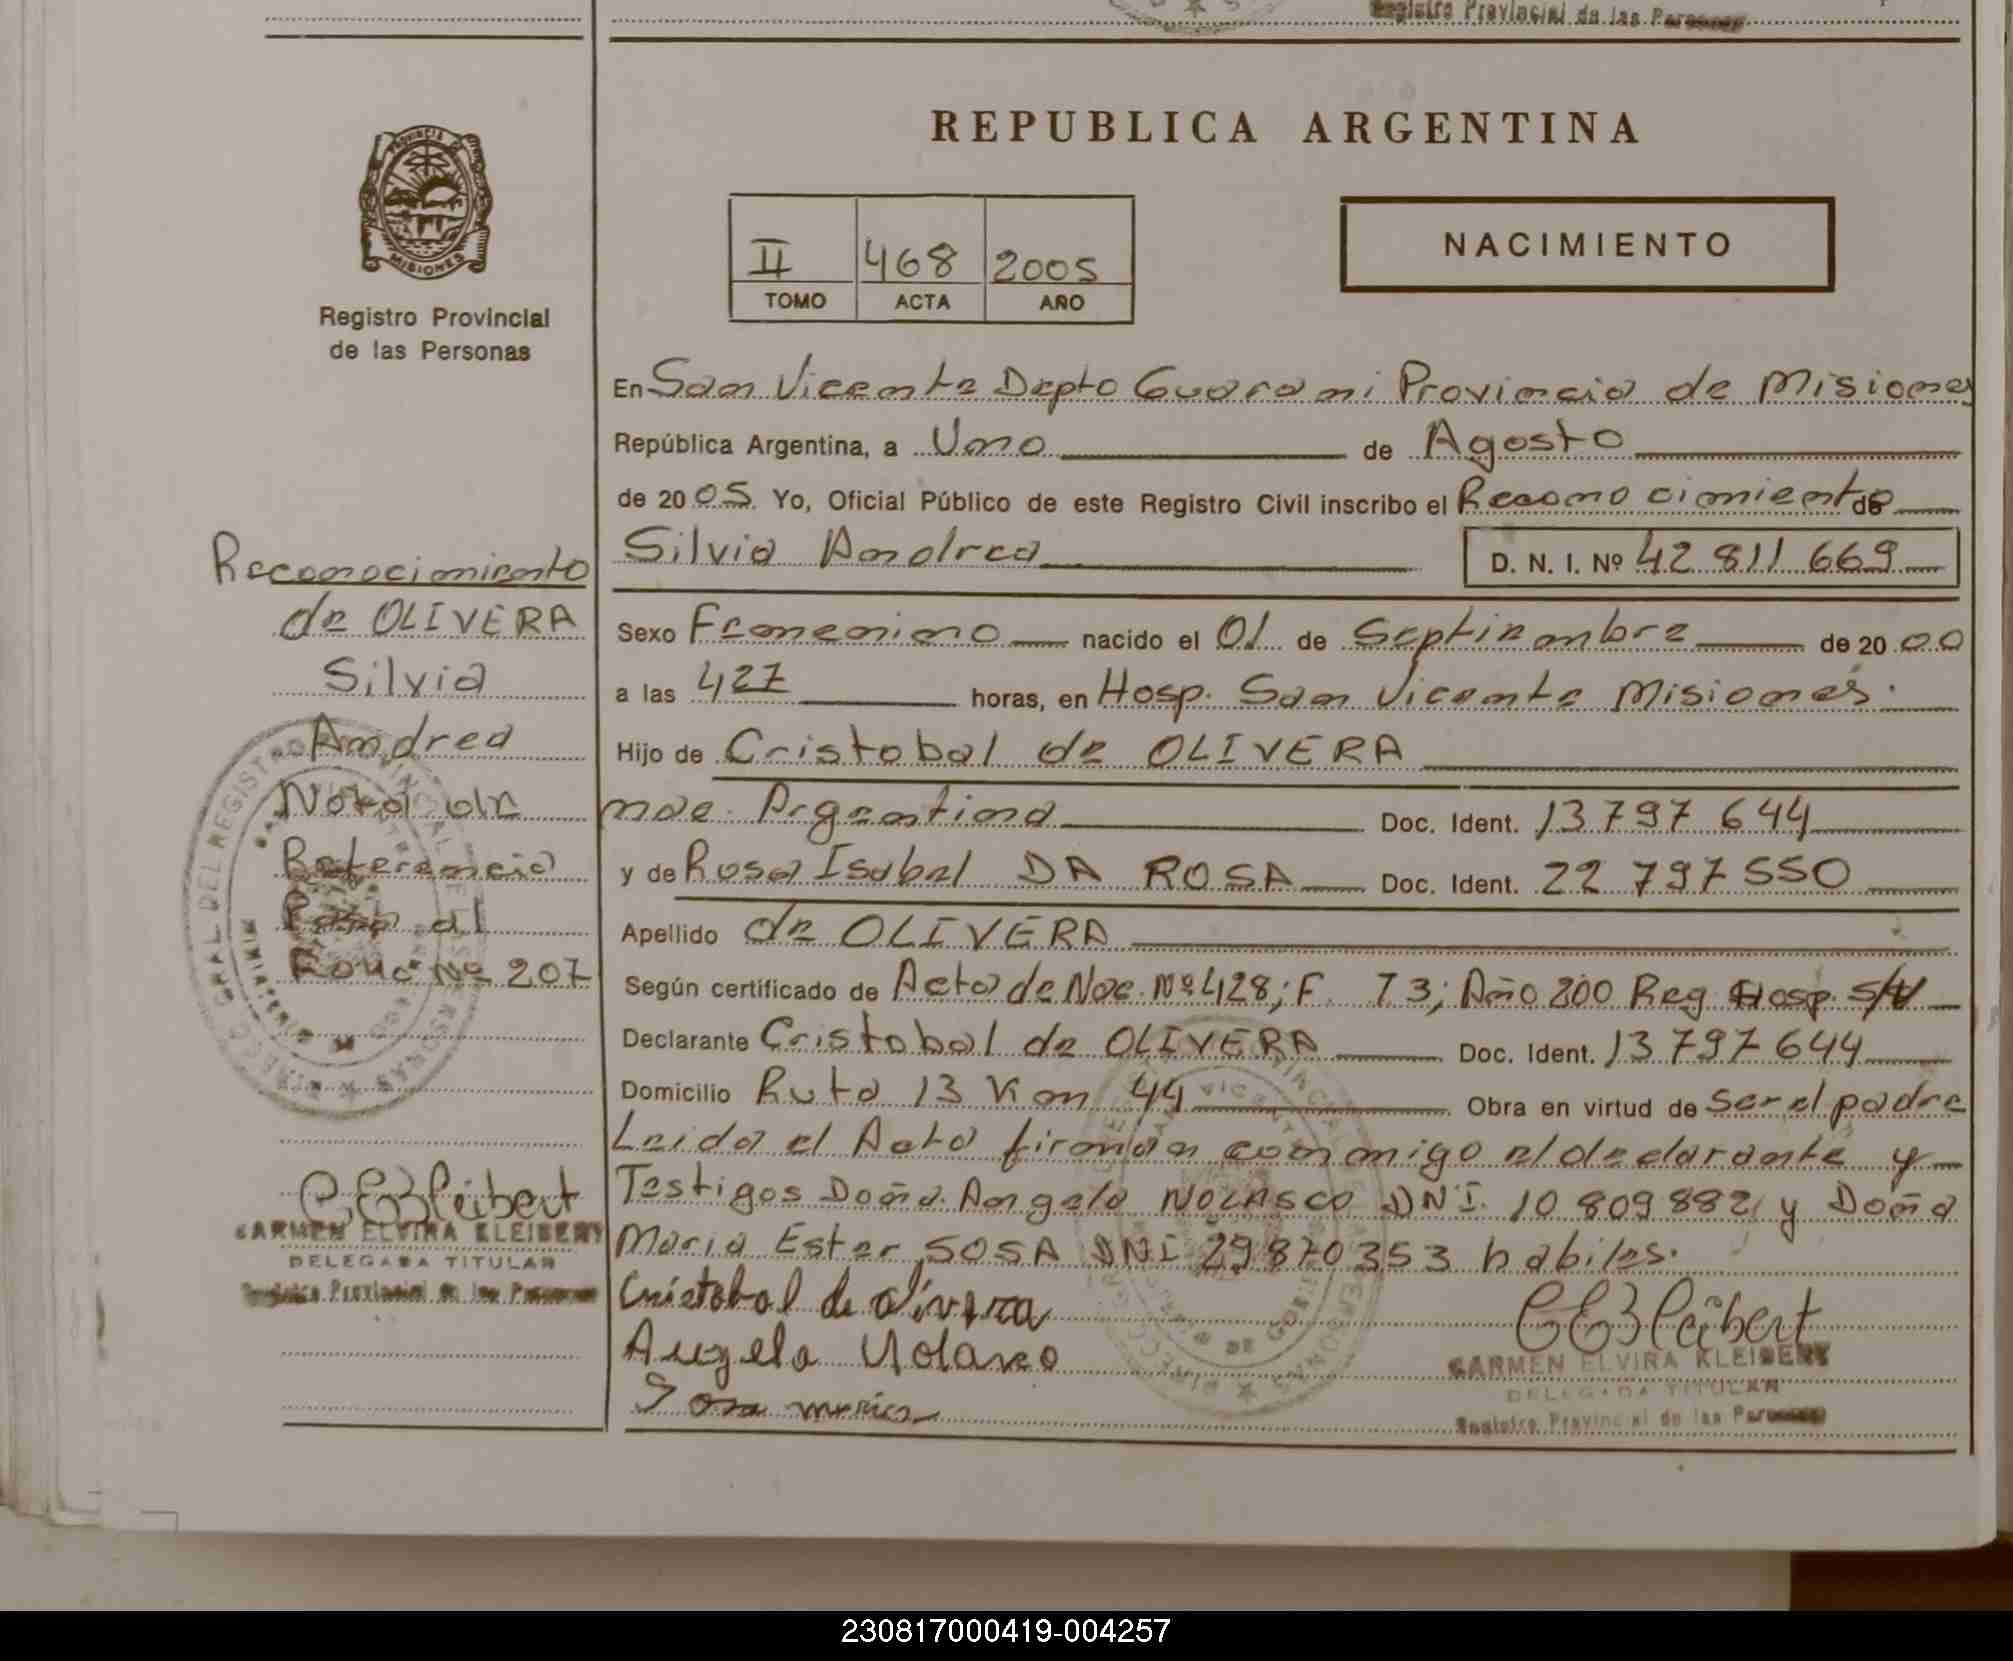 Registro Provincial de las Personas
PROVINCIA DE
MISIONES
Registro Provincial
de las Personas
REPUBLICA ARGENTINA
II 468 2005
TOMO ACTA AÑO
NACIMIENTO
En San Vicente Depto Guarani Provincia de Misiones
República Argentina, a Uno de Agosto
de 2005. Yo, Oficial Público de este Registro Civil inscribo el Reconocimiento de
Silvia Andrea D. N. I. Nº 42 811 669
Sexo Femenino nacido el 01 de Septiembre de 2000
a las 427 horas, en Hosp. San Vicente Misiones.
Hijo de Cristobal de OLIVERA
nac. Argentina Doc. Ident. 13 797 644
y de Rosa Isabel DA ROSA Doc. Ident. 22 797 550
Apellido de OLIVERA
Según certificado de Acta de Nac. Nº 428; F. 73; Año 200 Reg Hosp. S/V
Declarante Cristobal de OLIVERA Doc. Ident. 13 797 644
Domicilio Ruta 13 Km 44 Obra en virtud de ser el padre
Leida el Acta firman conmigo el declarante y
Testigos Doña Angela NOLASCO DNI. 10 809 882 y Doña
Maria Ester SOSA DNI 29 870 353 habiles.
Cristobal de olivera
Angela Nolasco
Sosa maria
CEKleibert
CARMEN ELVIRA KLEIBERT
DELEGADA TITULAR
Registro Provincial de las Personas
Reconocimiento
de OLIVERA
Silvia
Andrea
Nota de
Referencia
Paso al
Folio Nº 207
CEKleibert
CARMEN ELVIRA KLEIBERT
DELEGADA TITULAR
Registro Provincial de las Personas
230817000419-004257